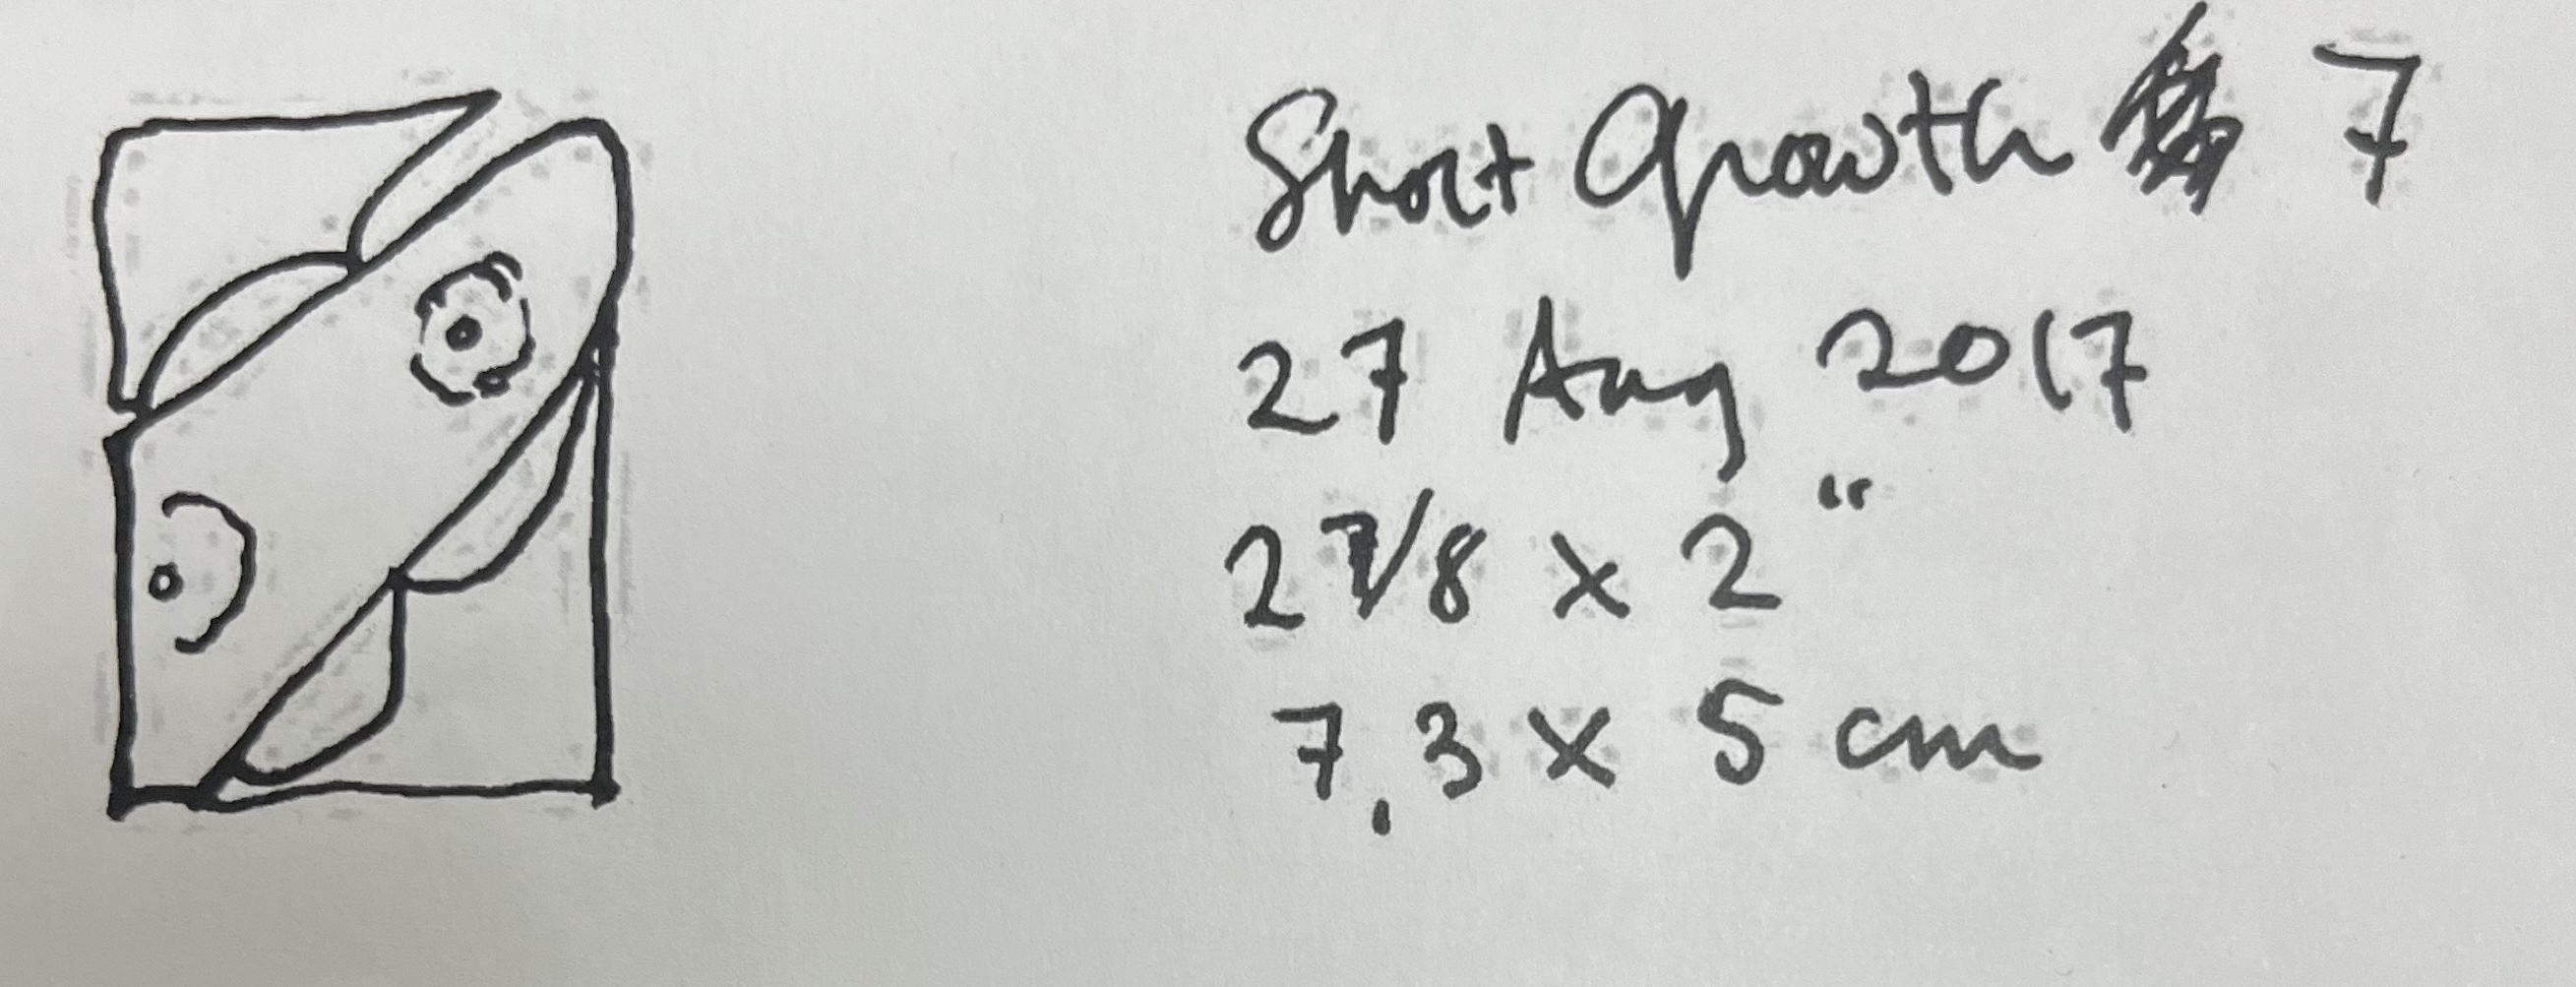 Short Growth 7
27 Aug 2017
2 7/8 x 2"
7,3 x 5 cm